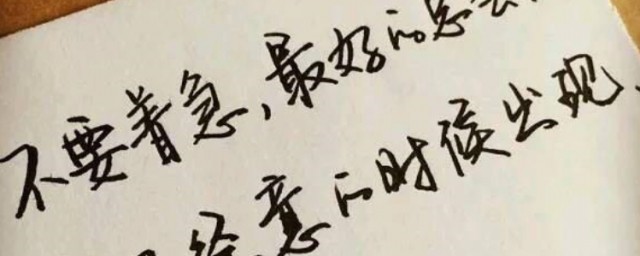 不要着急,最好的总会
经意的时候出现.